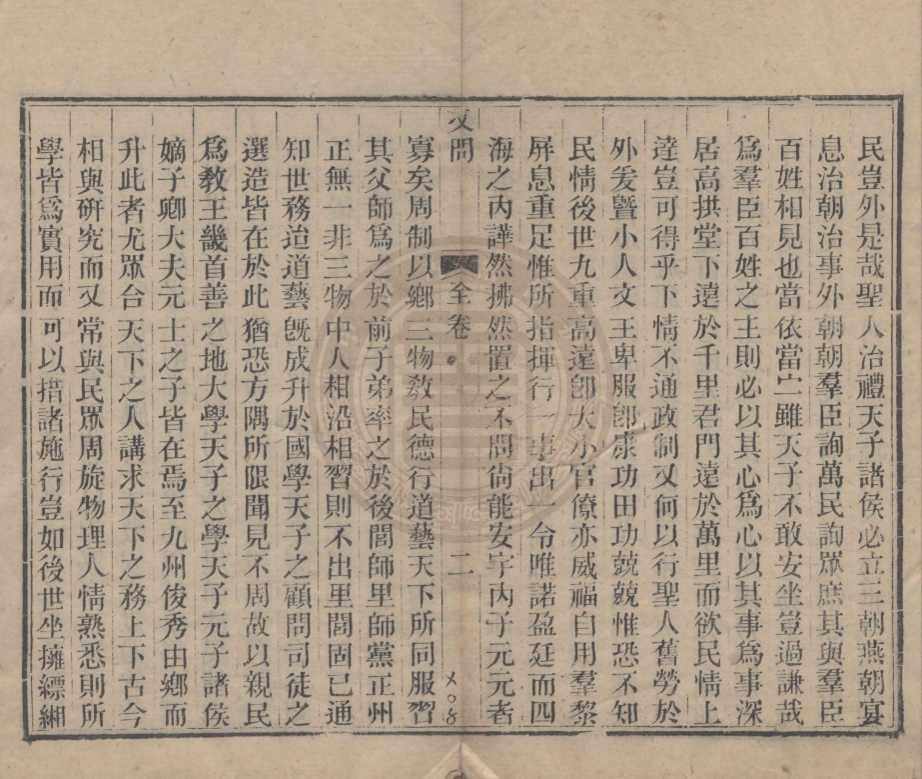 民豈外是哉聖人治禮天子諸侯必立三朝燕朝宴
息治朝治事外朝朝羣臣詢萬民詢眾庶其與羣臣
百姓相見也當依當宁雖天子不敢安坐豈過謙哉
爲羣臣百姓之主則必以其心爲心以其事爲事深
居高拱堂下遠於千里君門遠於萬里而欲民情上
達豈可得乎下情不通政制又何以行聖人舊勞於
外爰暨小人文王卑服卽康功田功兢兢惟恐不知
民情後世九重高遠卽大小官僚亦威福自用羣黎
屏息重足惟所指揮行一事出一令唯諾盈廷而四
海之內譁然拂然置之不問尙能安宇內于元元者
問 全卷 二
寡矣周制以鄉三物敎民德行道藝天下所同服習
其父師爲之於前子弟率之於後閭師里師黨正州
正無一非三物中人相沿相習則不出里閭固已通
知世務迨道藝旣成升於國學天子之顧問司徒之
選造皆在於此猶恐方隅所限聞見不周故以親民
爲敎王畿首善之地大學天子之學天子元子諸侯
嫡子卿大夫元士之子皆在焉至九州俊秀由鄉而
升此者尤眾合天下之人講求天下之務上下古今
相與研究而又常與民眾周旋物理人情熟悉則所
學皆爲實用而可以措諸施行豈如後世坐擁縹緗